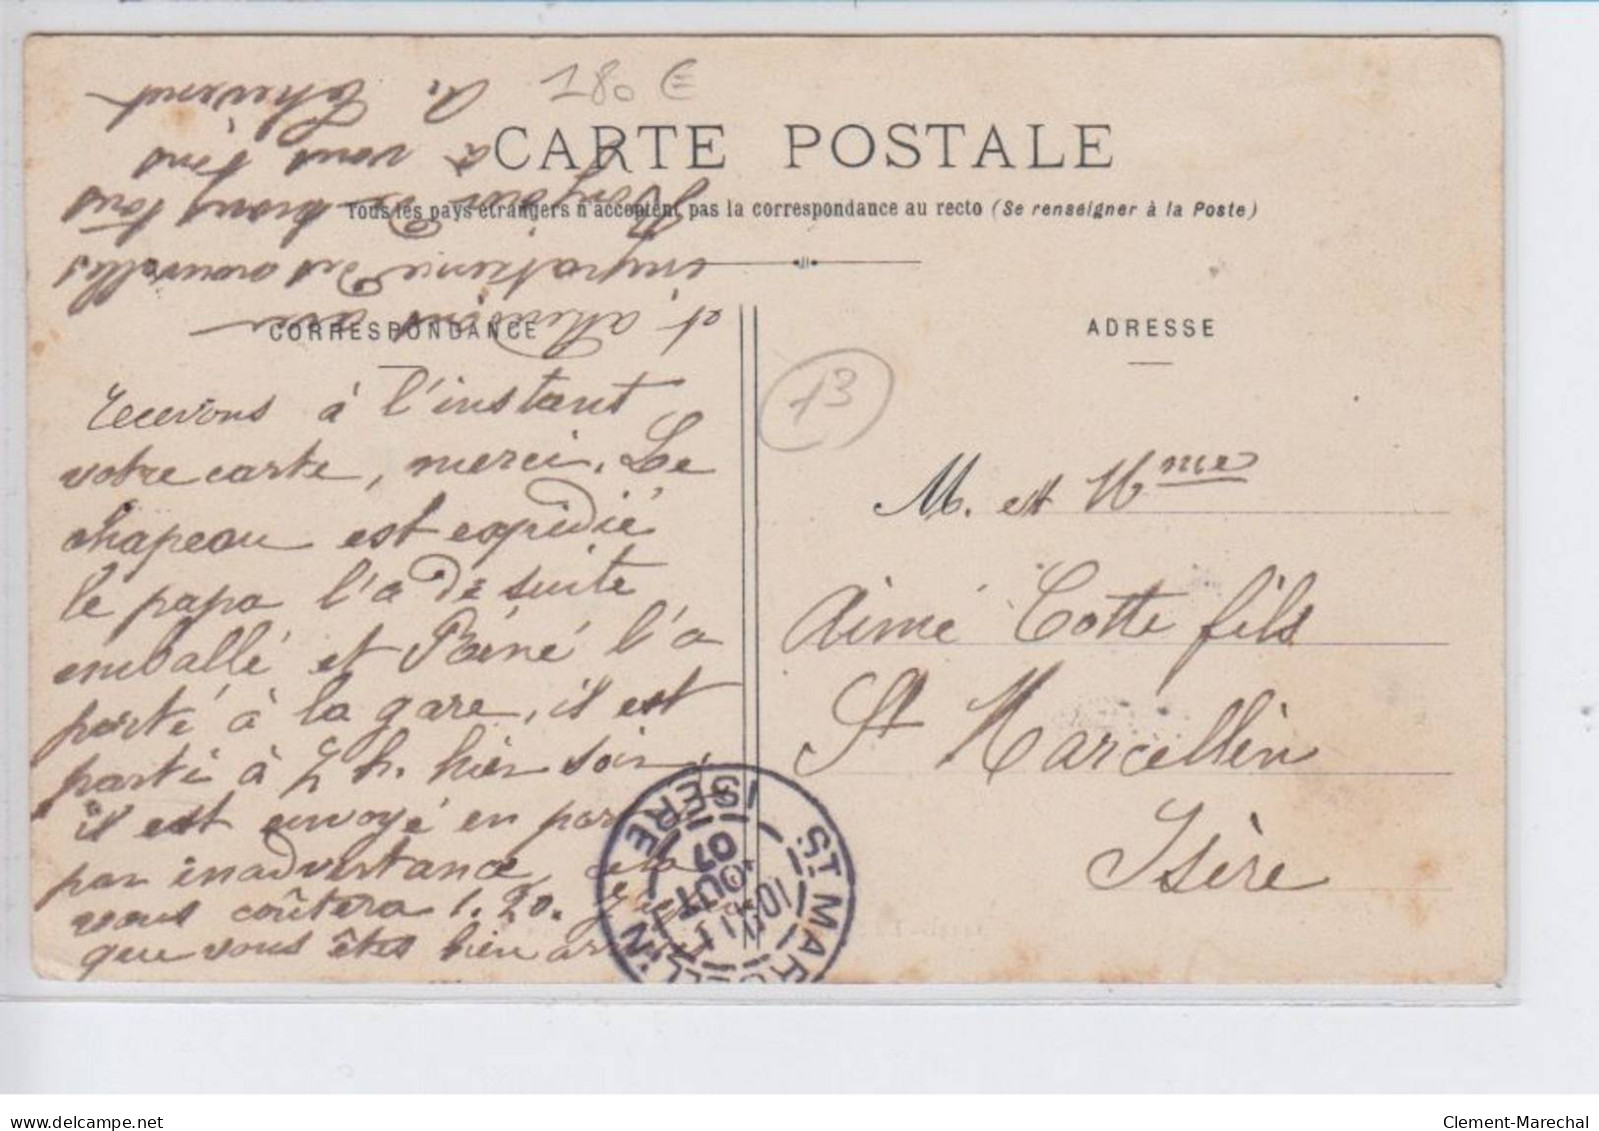 180 €
CARTE POSTALE
Tous les pays étrangers n'acceptent pas la correspondance au recto (Se renseigner à la Poste)
CORRESPONDANCE
recevons à l'instant
votre carte, merci. Le
chapeau est expédié
le papa l'a de suite
emballé et Réné l'a
porté à la gare, il est
parti à 7 h. hier soir,
il est envoyé en
par inadvertance, cela
vous coûtera 1.20.
que vous êtes bien
et attendons avec
impatience des nouvelles
Bonjour de nous tous
à vous tous
A. Thévenet
ADRESSE
13
M. et Mme
Aimé Cotte fils
St Marcellin
Isère
ST MARCELLIN
ISÈRE
10 AOUT
07
Clement-Marechal